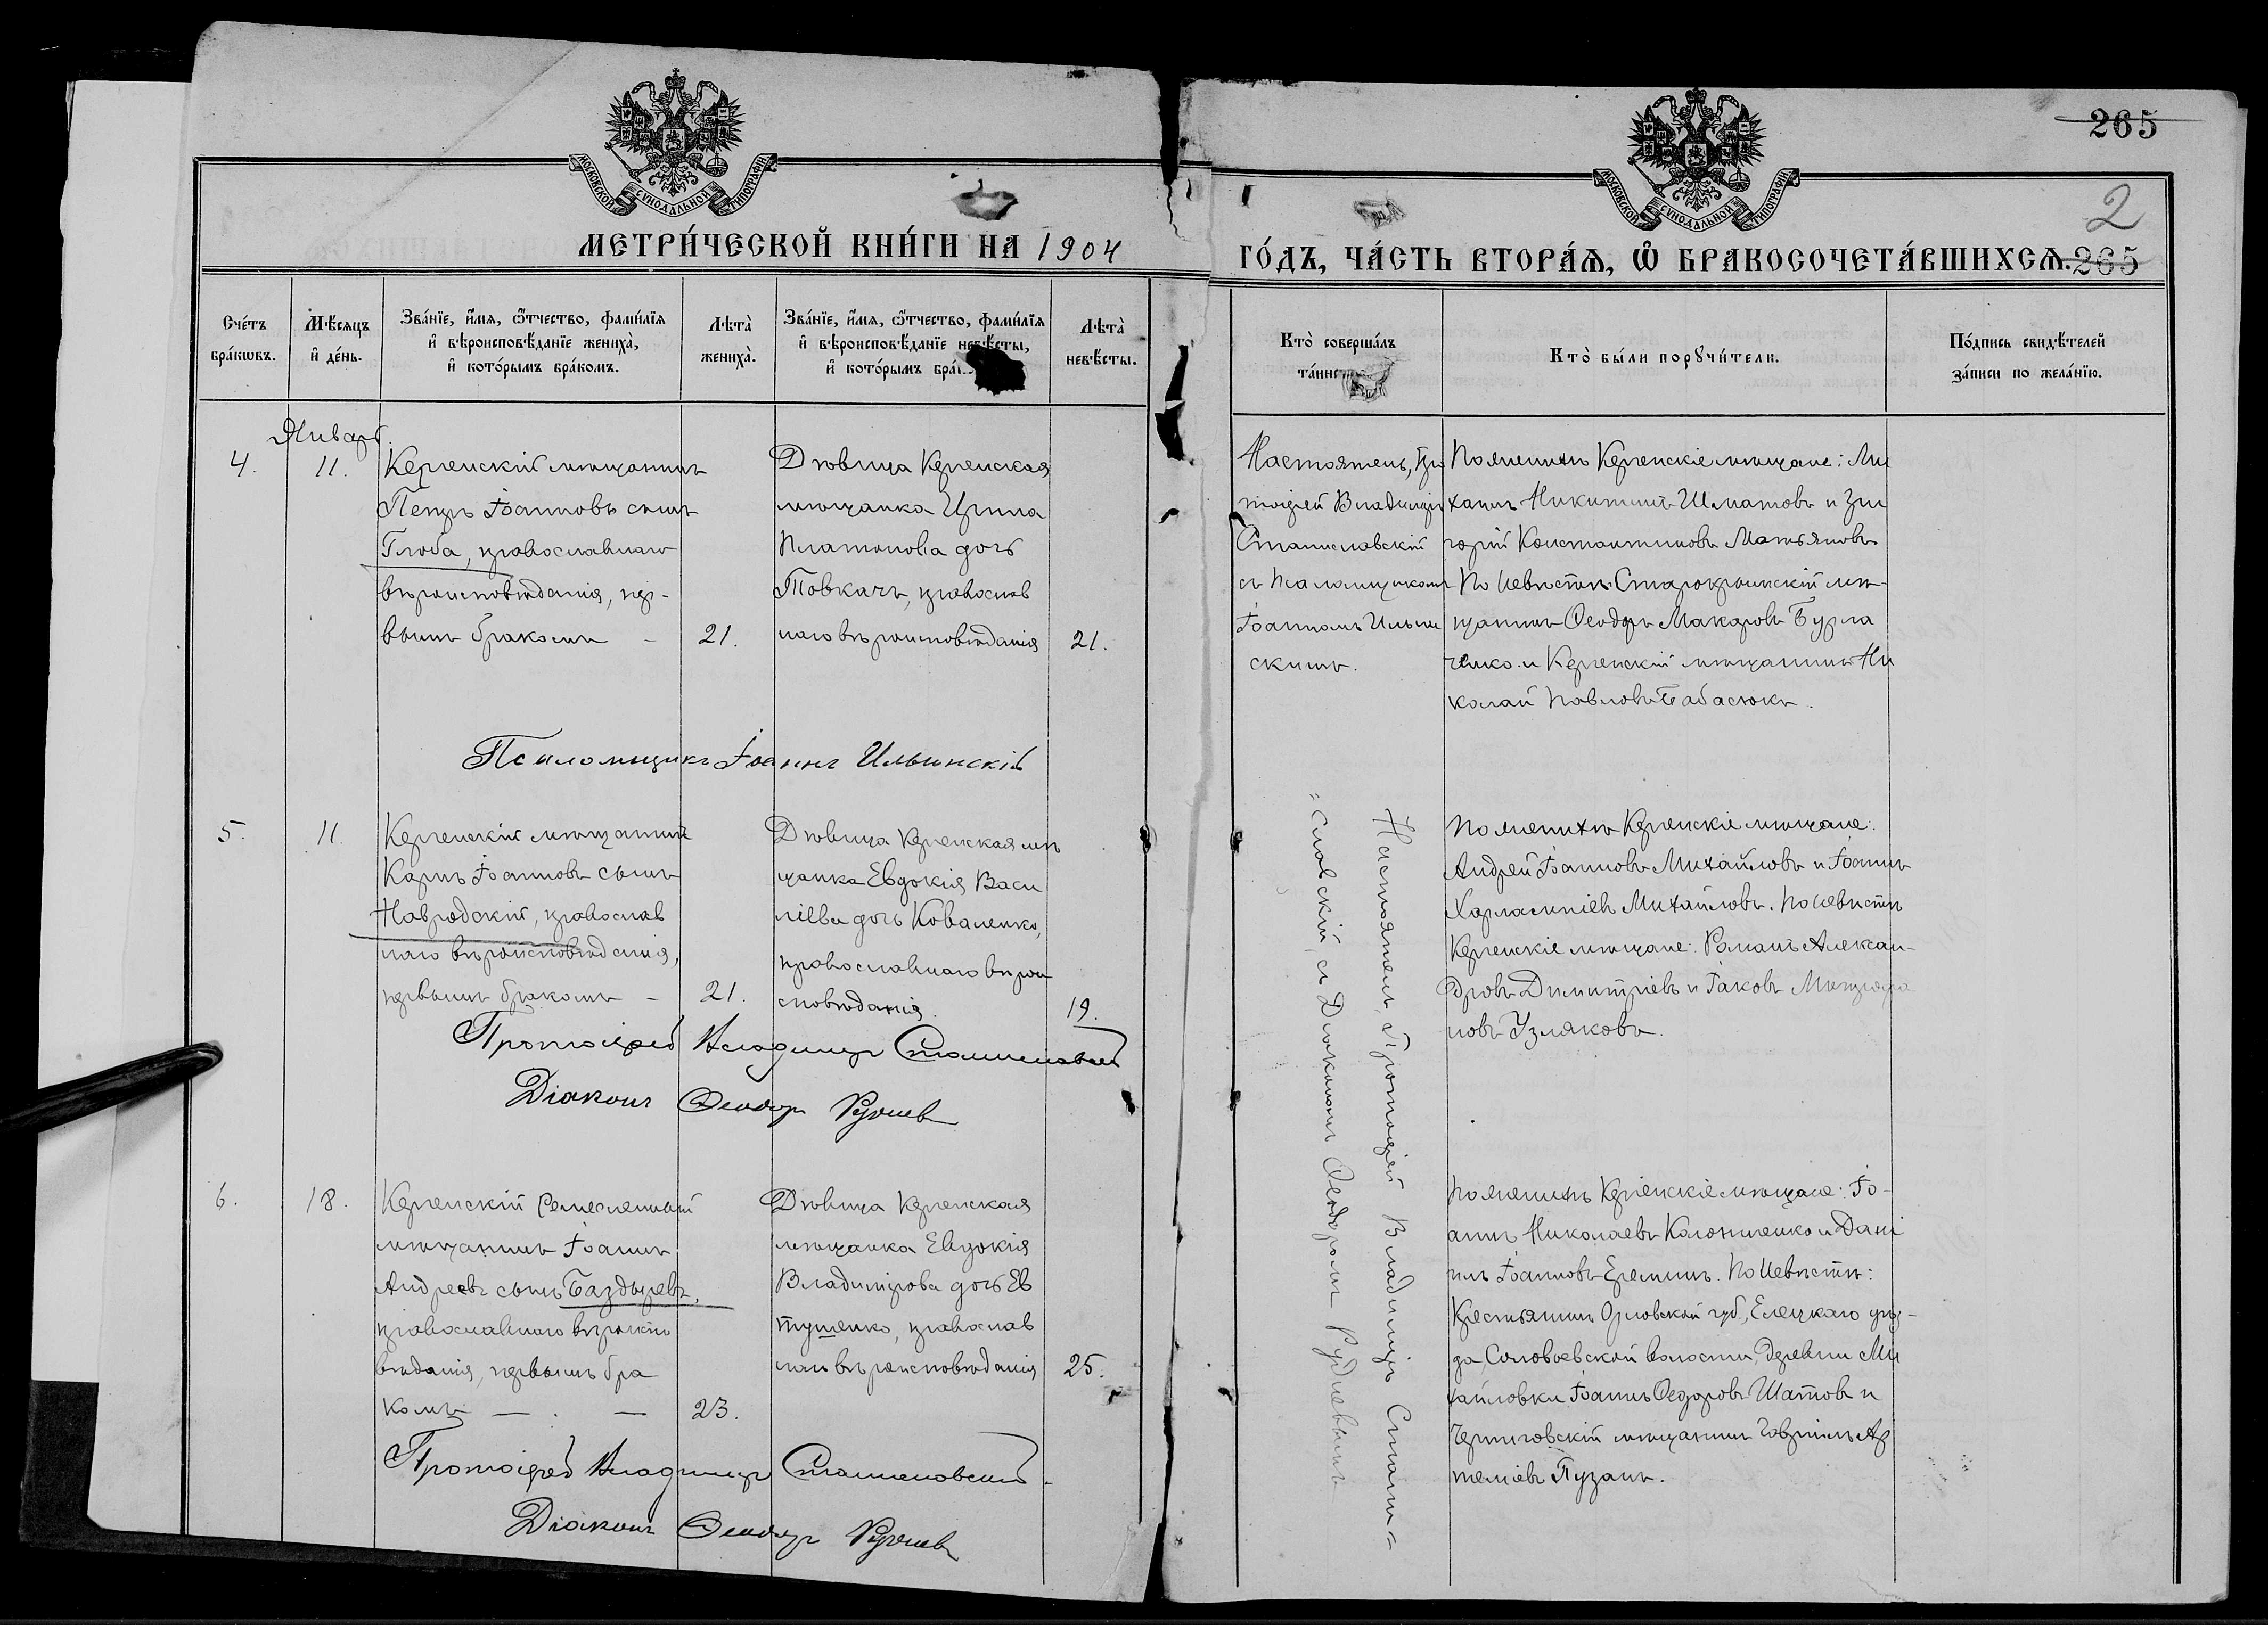 265
2
МОСКОВСКОЙ СѴНОДАЛЬНОЙ ТИПОГРАФІИ
МОСКОВСКОЙ СѴНОДАЛЬНОЙ ТИПОГРАФІИ
МЕТРИ́ЧЕСКОЙ КНИ́ГИ НА 1904
ГО́ДЪ, ЧА́СТЬ ВТОРА́Ѧ, Ѽ БРАКОСОЧЕТА́ВШИХСѦ. 265
Сче́тъ бра́кѡвъ.
М҃ѣсяцъ и҆ де́нь.
Зва́нїе, и҆́мя, ѻ҆́тчество, фамѝлїя
и҆ вѣроисповѣ́данїе жениха̀,
и҆ кото́рымъ бра́комъ.
Лѣта̀ жениха̀.
Зва́нїе, и҆́мя, ѻ҆́тчество, фамѝлїя
и҆ вѣроисповѣ́данїе невѣ́сты,
и҆ кото́рымъ
Лѣта̀ невѣ́сты.
Кто̀ соверша́лъ
Кто̀ бы́ли порꙋчи́тели.
По́дпись свидѣ́телей
за́писи по жела́нїю.
Январь
4.
11.
Керченскій мѣщанинъ
Петръ Іоанновъ сынъ
Глоба, православнаго
вѣроисповѣданія, пер-
вымъ бракомъ –
21.
Дѣвица Керченская
мѣщанка Ирина
Платонова дочь
Товкачъ, православ
наго вѣроисповѣданія
21.
Настоятель, Про
тоіерей Владиміръ
Станиславскій
съ Псаломщикомъ
Іоанномъ Ильин
скимъ.
По женихѣ Керченскіе мѣщане: Ми
хаилъ Никитинъ Шматовъ и Гри
горій Константиновъ Матьяновъ
По невѣстѣ Старокрымскій мѣ-
щанинъ Ѳеодоръ Макаровъ Бурла
ченко и Керченскій мѣщанинъ Ни
колай Павловъ Бабасюкъ.
Псаломщикъ Іоаннъ Ильинскій
5.
11.
Керченскій мѣщанинъ
Карпъ Іоанновъ сынъ
Навродскій, православ
наго вѣроисповѣданія,
первымъ бракомъ –
21.
Дѣвица Керченская мѣ
щанка Евдокія Васи
ліева дочь Коваленко,
православнаго вѣрои
сповѣданія.
19.
Настоятель, Протоіерей Владиміръ Стани=
=славскій, съ Діакономъ Ѳеодоромъ Рудневымъ
По женихѣ Керченскіе мѣщане:
Андрей Іоанновъ Михайловъ и Іоаннъ
Харлампіевъ Михайловъ. По невѣстѣ
Керченскіе мѣщане: Романъ Алексан-
дровъ Димитріевъ и Іаковъ Митрофа
новъ Узляковъ.
Протоіерей Владиміръ Станиславскій
Діаконъ Ѳеодоръ Рудневъ
6.
18.
Керченскій Ремесленный
мѣщанинъ Іоаннъ
Андреевъ сынъ Баздыревъ,
православнаго вѣроиспо
вѣданія, первымъ бра
комъ — . —
23.
Дѣвица Керченская
мѣщанка Евдокія
Владимірова дочь Ев
тушенко, православ
наго вѣроисповѣданія
25.
По женихѣ Керченскіе мѣщане: Іо-
аннъ Николаевъ Калюжненко и Дані
илъ Іоанновъ Ереминъ. По невѣстѣ:
Крестьянинъ Орловской губ., Елецкаго уѣз-
да, Соловьевской волости, деревни Ми
хайловки Іоаннъ Ѳедоровъ Шатовъ и
Черниговскій мѣщанинъ Гавріилъ Ар
теміевъ Пузанъ.
Протоіерей Владиміръ Станиславскій.
Діаконъ Ѳеодоръ Рудневъ